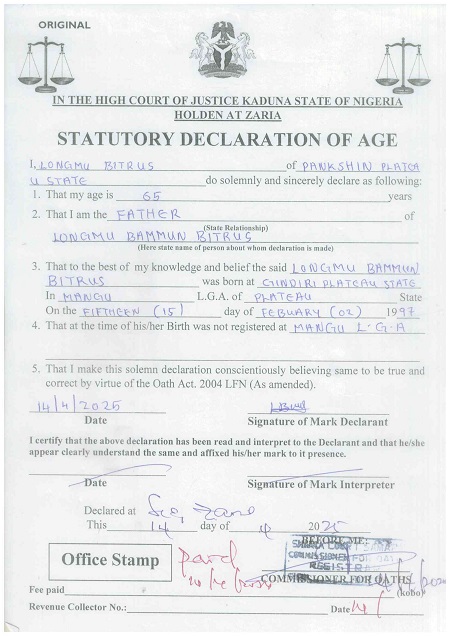 ORIGINAL
IN THE HIGH COURT OF JUSTICE KADUNA STATE OF NIGERIA
HOLDEN AT ZARIA
STATUTORY DECLARATION OF AGE
I, LONGMU BITRUS of PANKSHIN PLATEA
U STATE do solemnly and sincerely declare as following:
1. That my age is 65 years
2. That I am the FATHER of
(State Relationship)
LONGMU BAMMUN BITRUS
(Here state name of person about whom declaration is made)
3. That to the best of my knowledge and belief the said LONGMU BAMMUN
BITRUS was born at GINDIRI PLATEAU STATE
In MANGU L.G.A. of PLATEAU State
On the FIFTHEEN (15) day of FEBUARY (02) 1997
4. That at the time of his/her Birth was not registered at MANGU L.G.A
5. That I make this solemn declaration conscientiously believing same to be true and
correct by virtue of the Oath Act. 2004 LFN (As amended).
14/4/2025
Date Signature of Mark Declarant
I certify that the above declaration has been read and interpret to the Declarant and that he/she
appear clearly understand the same and affixed his/her mark to it presence.
Date Signature of Mark Interpreter
Declared at
This 14 day of 4 2025
BEFORE ME:
COMMISSIONER FOR OATHS
REGISTR
Office Stamp
COMMISSIONER FOR OATHS
Fee paid (kobo)
Revenue Collector No.: Date